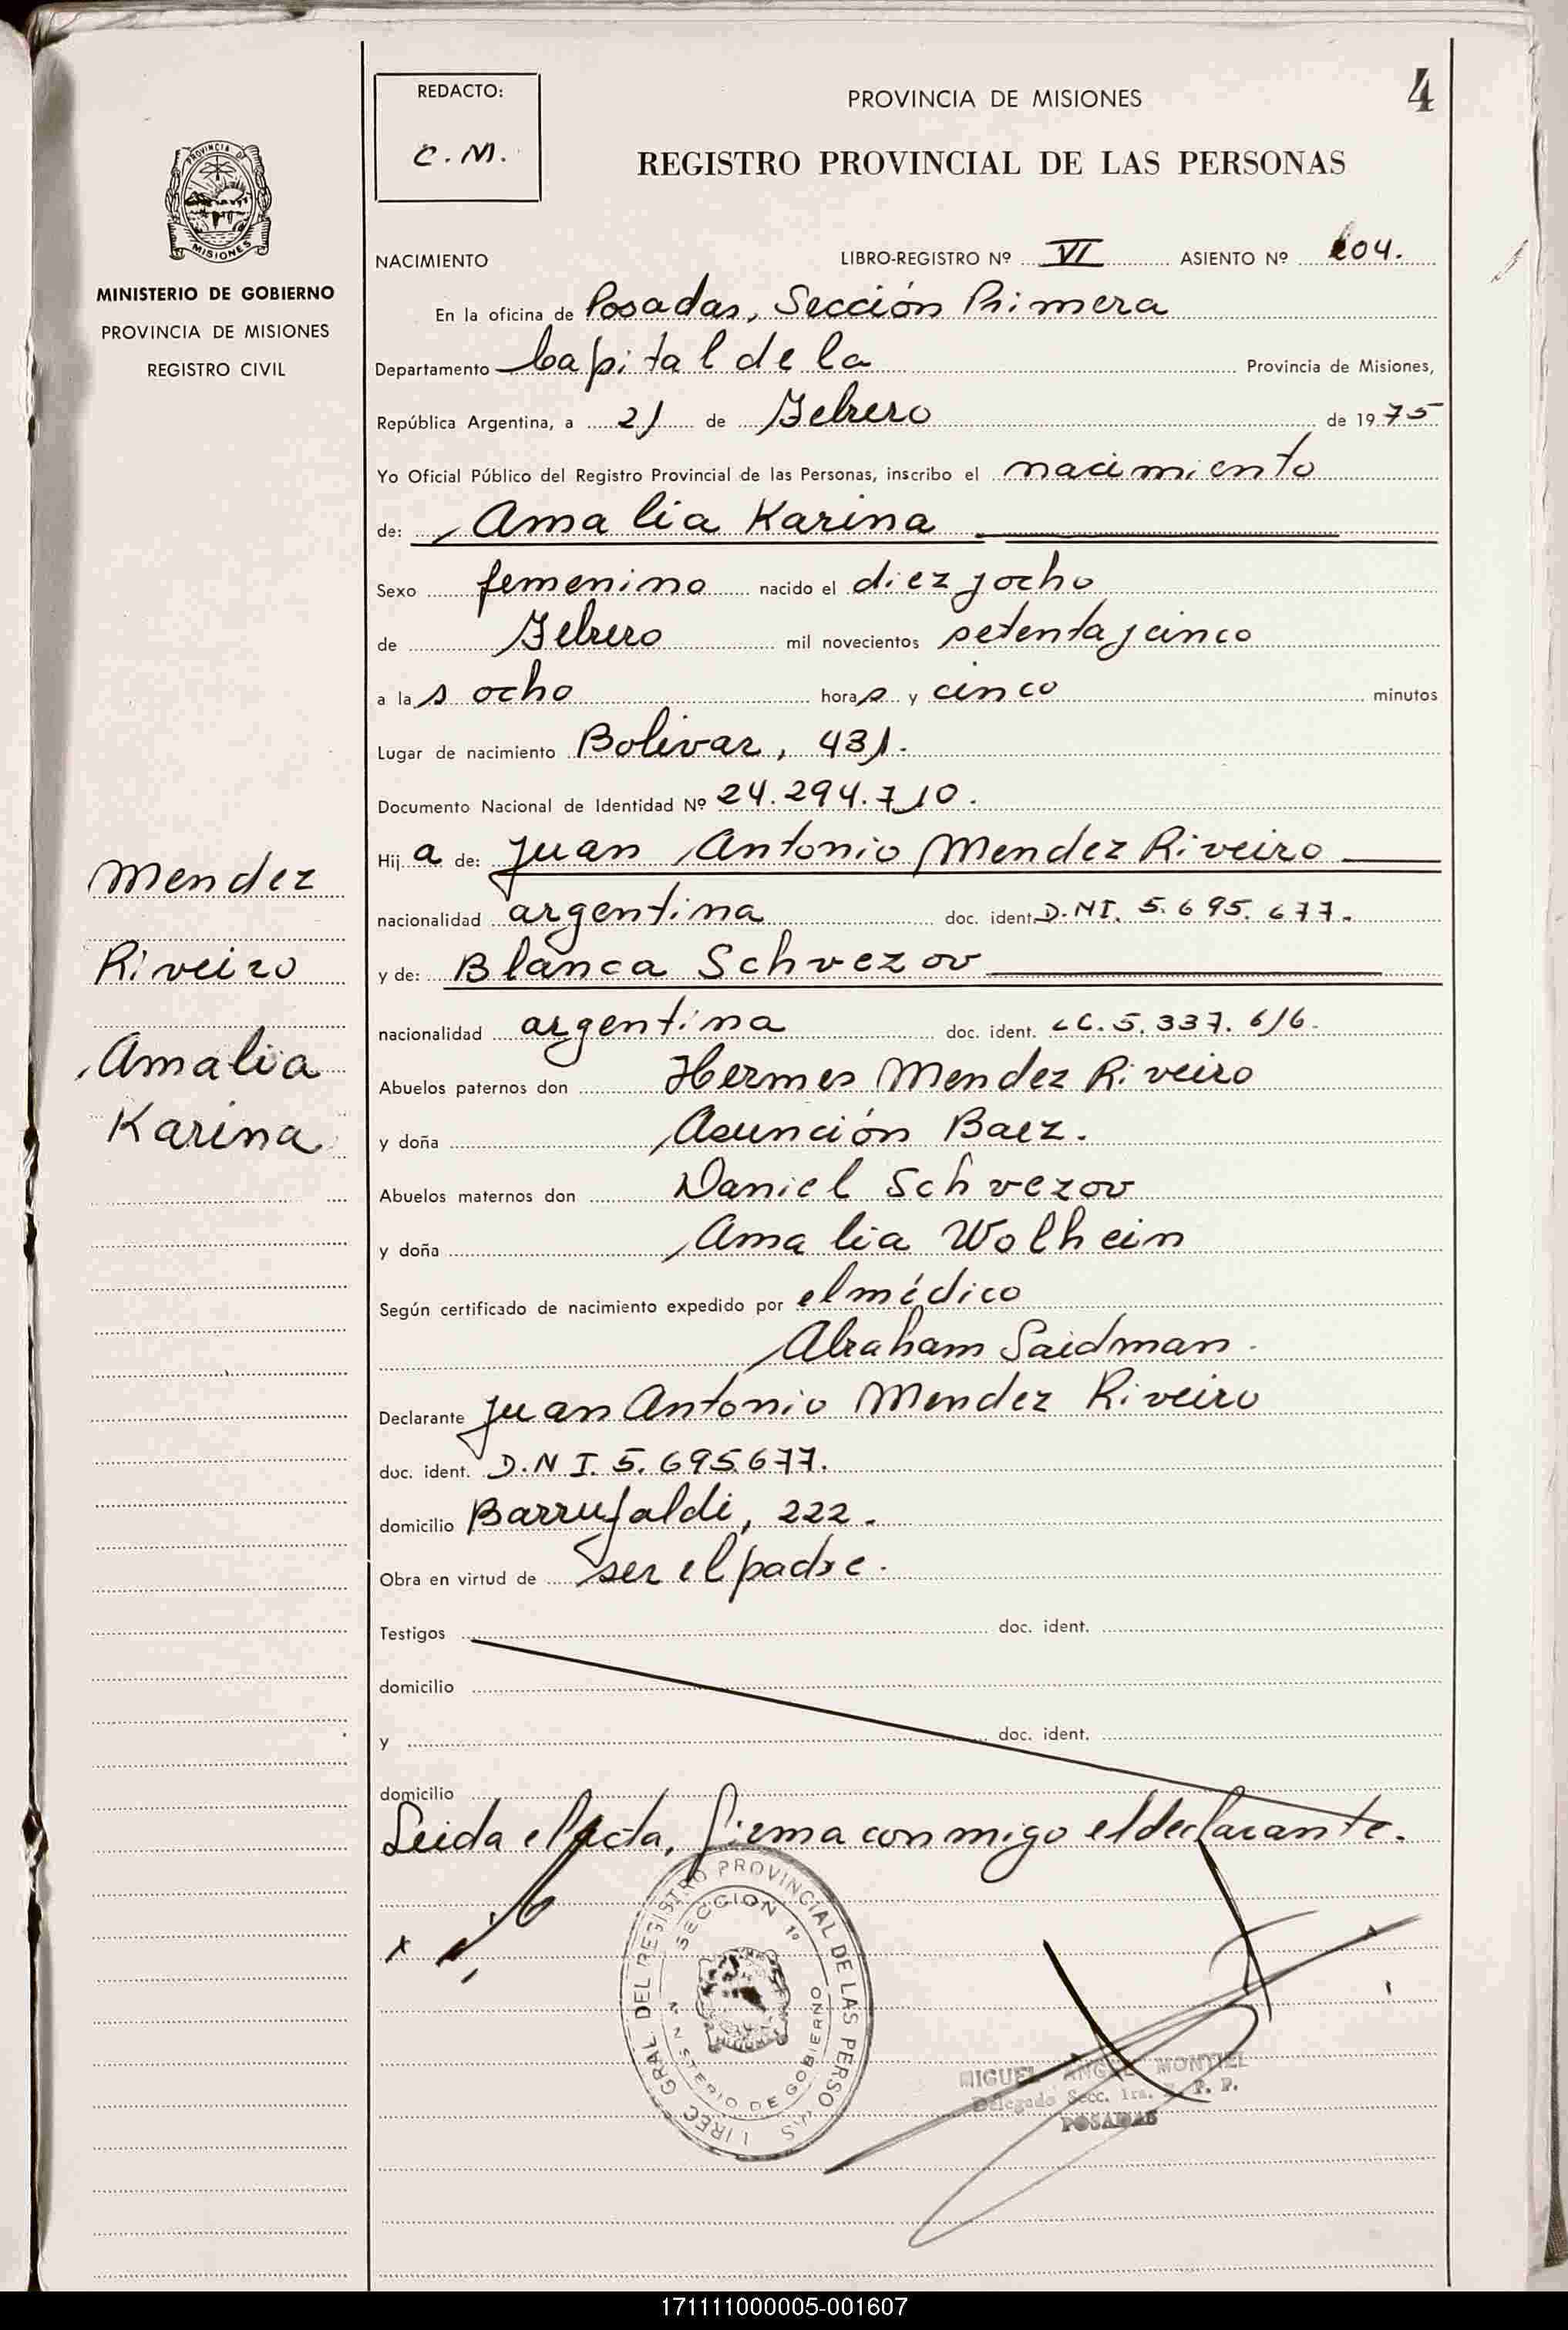 REDACTO:
C.M.
PROVINCIA DE MISIONES
4
REGISTRO PROVINCIAL DE LAS PERSONAS
PROVINCIA DE
MISIONES
MINISTERIO DE GOBIERNO
PROVINCIA DE MISIONES
REGISTRO CIVIL
NACIMIENTO
LIBRO-REGISTRO Nº VI ASIENTO Nº 04.
En la oficina de Posadas, Sección Primera
Departamento Capital de la Provincia de Misiones,
República Argentina, a 21 de Febrero de 1975
Yo Oficial Público del Registro Provincial de las Personas, inscribo el nacimiento
de: Amalia Karina
Sexo femenino nacido el diez y ocho
de Febrero mil novecientos setenta y cinco
a las ocho horas y cinco minutos
Lugar de nacimiento Bolivar, 431.
Documento Nacional de Identidad Nº 24.294.710.
Hija de: Juan Antonio Mendez Riveiro
nacionalidad argentina doc. ident. D.NI. 5.695.677.
y de: Blanca Schvezov
nacionalidad argentina doc. ident. LC. 5.337.616.
Abuelos paternos don Hermes Mendez Riveiro
y doña Asunción Baez.
Abuelos maternos don Daniel Schvezov
y doña Amalia Wolhein
Según certificado de nacimiento expedido por el médico
Abraham Saidman.
Declarante Juan Antonio Mendez Riveiro
doc. ident. D.N I. 5.695.677.
domicilio Barrufaldi, 222.
Obra en virtud de ser el padre.
Testigos doc. ident.
domicilio
y doc. ident.
domicilio
Leida el acta, firma conmigo el declarante.
Mendez
Riveiro
Amalia
Karina
x
DIREC GRAL DEL REGISTRO PROVINCIAL DE LAS PERSONAS
SECCION 1º
MINISTERIO DE GOBIERNO
MIGUEL ANGEL MONTIEL
Delegado Secc. 1ra. R. P. P.
POSADAS
171111000005-001607